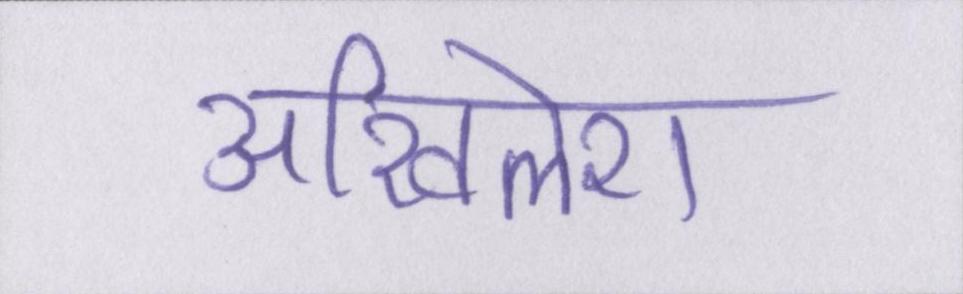 अखिलेश